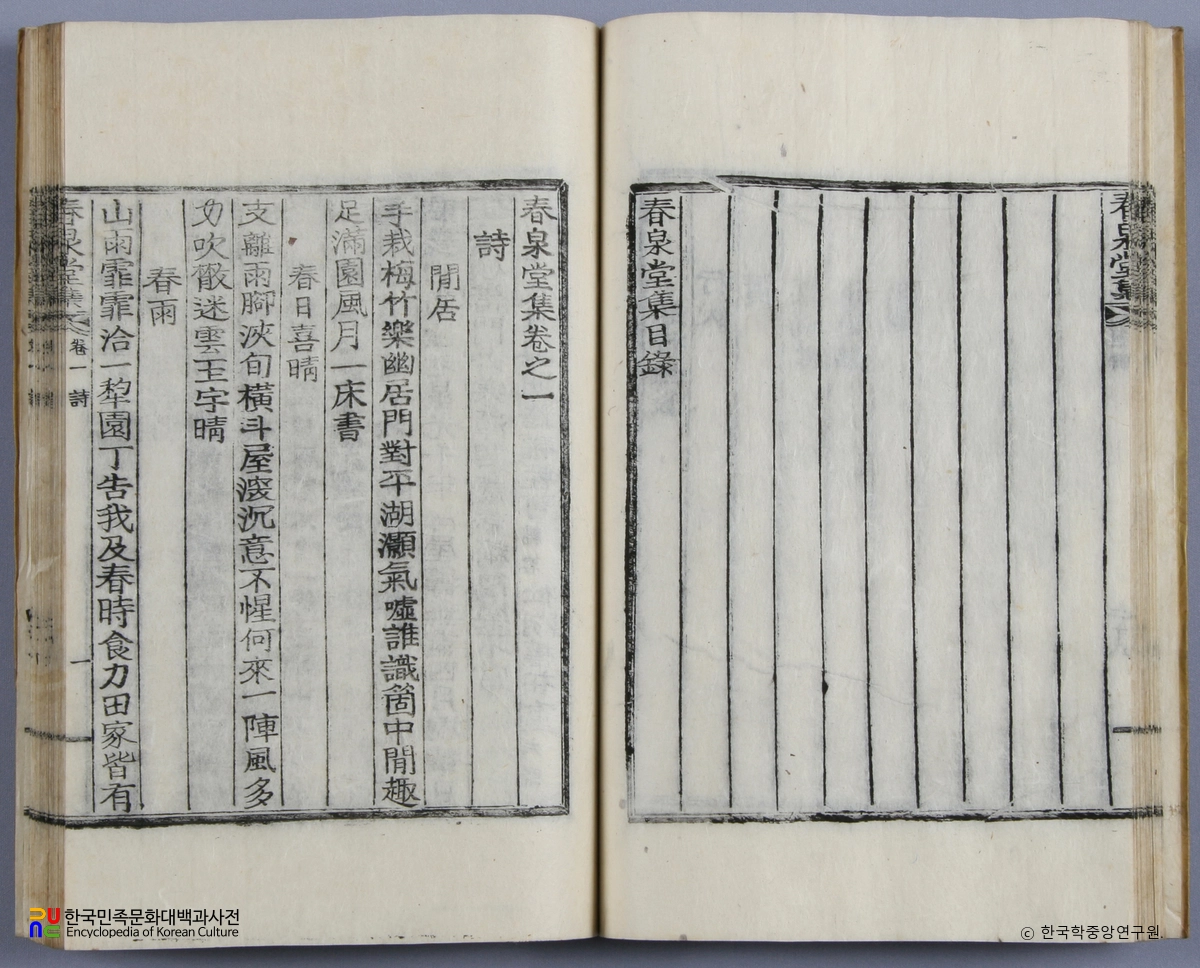 春泉堂集目錄
春泉堂集卷之一
詩
閒居
手栽梅竹樂幽居門對平湖灝氣噓誰識箇中閒趣
足滿園風月一床書
春日喜晴
支離雨脚浹旬橫斗屋深沉意不惺何來一陣風多
力吹散迷雲玉字晴
春雨
山雨霏霏洽一犁園丁告我及春時食力田家皆有
春泉堂集
卷一
詩
一
한국민족문화대백과사전
Encyclopedia of Korean Culture
ⓒ 한국학중앙연구원.